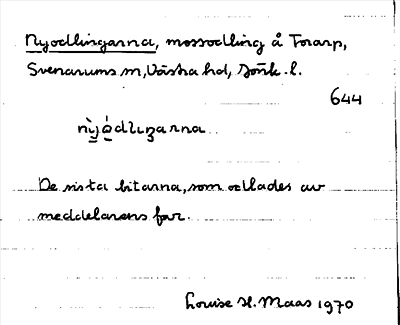 Nyodlingarna, mossodling å Torarp,
Svenarums sn, Västra hd, Jönk. l.
644
nỳódlıŋarna
De sista bitarna, som odlades av
meddelarens far.
Louise H. Maas 1970